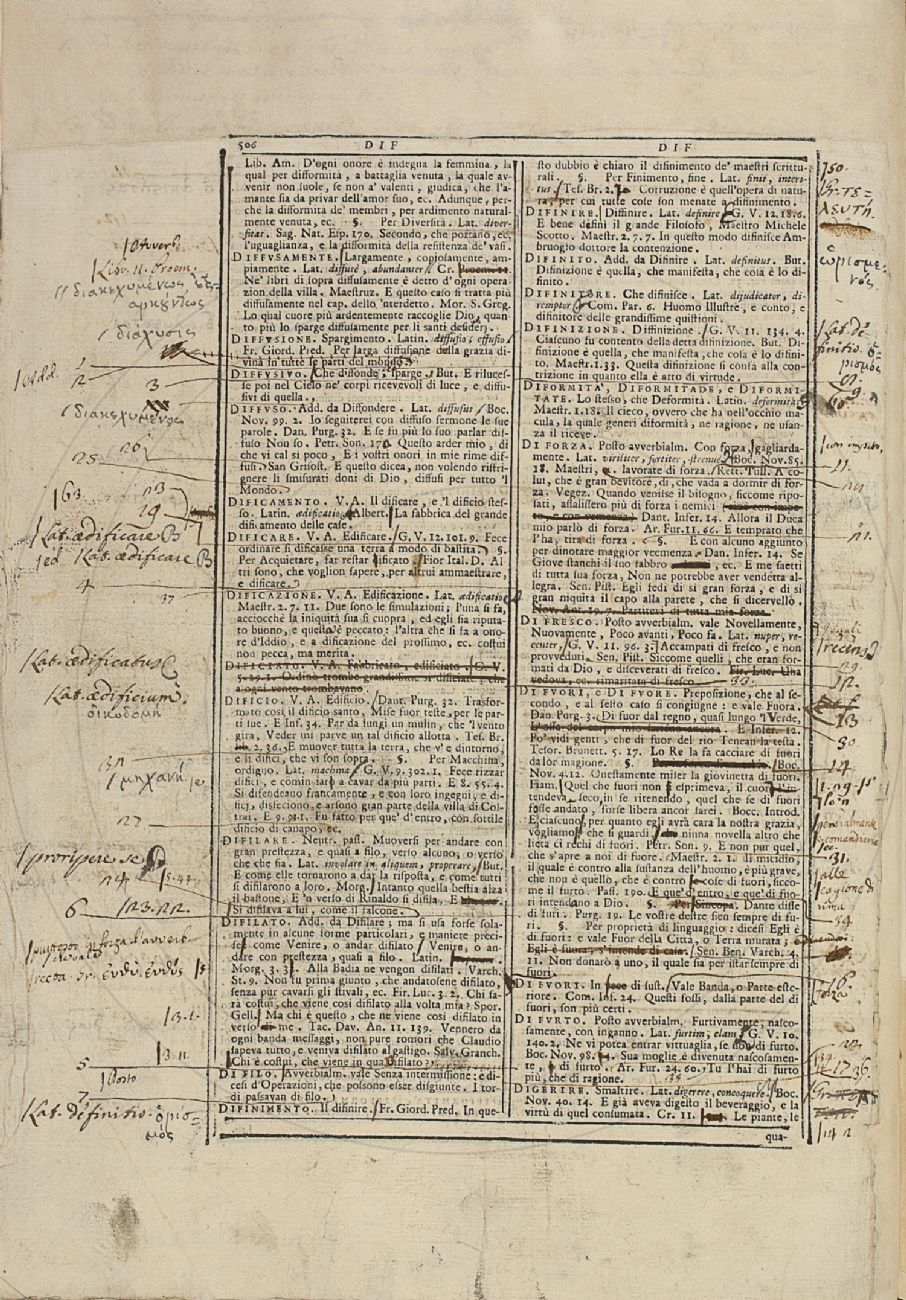 506 DIF DIF
Lib. Am. D'ogni onore è indegna la femmina, la
qual per difformità, a battaglia venuta, la quale av-
venir non suole, se non a' valenti, giudica, che l'a-
mante sia da privar dell'amor suo, ec. Adunque, per-
chè la difformità de' membri, per ardimento natural-
mente venuta, ec. §. Per Diversità. Lat. diver-
sitas. Sag. Nat. Esp. 170. Secondo, che portano, ec.
l'uguaglianza, e la difformità della resistenza de' vasi.
DIFFUSAMENTE. Largamente, copiosamente, am-
piamente. Lat. diffusè, abundanter. Cr.
Ne' libri di sopra diffusamente è detto d'ogni opera-
zion della villa. Maestruz. E questo caso si tratta più
diffusamente nel cap. dello 'nterdetto. Mor. S. Greg.
Lo qual cuore più ardentemente raccoglie Dio, quan-
to più lo sparge diffusamente per li santi desiderj.
DIFFUSIONE. Spargimento. Lat. diffusio, effusio.
Fr. Giord. Pred. Per larga diffusione della grazia di-
vina in tutte le parti del mondo.
DIFFUSIVO. Che diffonde, sparge. But. E riluces-
se poi nel Cielo ne' corpi ricevevoli di luce, e diffu-
sivi di quella.
DIFFUSO. Add. da Diffondere. Lat. diffusus. Boc.
Nov. 99. 2. Io seguiterei con diffuso sermone le sue
parole. Dan. Purg. 32. E se fu più lo suo parlar dif-
fuso Non so. Petr. Son. 170. Questo arder mio, di
che vi cal sì poco, E i vostri onori in mie rime dif-
fusi. San Grisost. E questo dicea, non volendo ristri-
gnere li smisurati doni di Dio, diffusi per tutto 'l
Mondo.
DIFICAMENTO. V. A. Il dificare, e 'l dificio stes-
so. Latin. ædificatio. Albert. La fabbrica del grande
dificamento delle case.
DIFICARE. V. A. Edificare. G. V. 12. 101. 9. Fece
ordinare si dificasse una terra a modo di bastita. §.
Per Acquietare, far restar dificato. Fior Ital. D. Al
tri sono, che voglion sapere, per altrui ammaestrare,
e dificare.
DIFICAZIONE. V. A. Edificazione. Lat. ædificatio.
Maestr. 2. 7. 11. Due sono le simulazioni; l'una si fa,
acciocchè la iniquità sua si cuopra, ed egli sia riputa-
to buono, e questo è peccato: l'altra che si fa a ono-
re d'Iddio, e a dificazione del prossimo, ec. costui
non pecca, ma merita.
DIFICIATO. V. A. Fabbricato, edificiato. G. V.
5. 29. 1. Ordinò trombe grandissime sì dificiate, che
a ogni vento trombavano.
DIFICIO. V. A. Edificio. Dant. Purg. 32. Trasfor-
mato così il dificio santo, Mise fuor teste, per le par-
ti sue. E Inf. 34. Par da lungi un mulin, che 'l vento
gira, Veder mi parve un tal dificio allotta. Tes. Br.
2. 36. E muover tutta la terra, che v'è dintorno,
e li difici, che vi son sopra. §. Per Macchina,
ordigno. Lat. machina. G. V. 9. 302. 1. Fece rizzar
difici, e cominciaro a cavar da più parti. E 8. 55. 4.
Si difendeano francamente, e con loro ingegni, e di-
fici, disfeciono, e arsono gran parte della villa di Col-
trai. E 9. 91. 1. Fu fatto per que' d'entro, con sottile
dificio di canapo, ec.
DIFILARE. Neutr. pass. Muoversi per andare con
gran prestezza, e quasi a filo, verso alcuno, o verso
che che sia. Lat. involare in aliquem, properare. But.
E come elle tornarono a dar la risposta, e come tutti
si difilarono a loro. Morg. Intanto quella bestia alza
il bastone, E 'n verso di Rinaldo si difila. E
Si difilava a lui, come il falcone.
DIFILATO. Add. da Difilare; ma si usa forse so-
lamente in alcune forme particolari, e maniere preci-
se, come Venire, o andar difilato. Venire, o an-
dare con prestezza, quasi a filo. Latin.
Morg. 3. 3. Alla Badia ne vengon difilati. Varch.
St. 9. Non fu prima giunto, che andatosene difilato,
senza pur cavarsi gli stivali, ec. Fir. Luc. 3. 2. Chi sa-
rà costui, che viene così difilato alla volta mia? Spor.
Gell. Ma chi è questo, che ne viene così difilato in
verso me. Tac. Dav. An. 11. 139. Vennero da
ogni banda messaggi, non pure romori che Claudio
sapeva tutto, e veniva difilato al gastigo. Salv. Granch.
Chi è costui, che viene in quà difilato?
DI FILO. Avverbialm. vale Senza intermissione: e di-
cesi d'Operazioni, che possono esser disgiunte. I tor-
di passavan di filo.
DIFINIMENTO. Il difinire. Fr. Giord. Pred. In que-
sto dubbio è chiaro il difinimento de' maestri scrittu-
rali. §. Per Finimento, fine. Lat. finis, interi-
tus. Tes. Br. 2. Corruzione è quell'opera di natu-
ra, per cui tutte cose son menate a difinimento.
DIFINIRE. Diffinire. Lat. definire. G. V. 12. 18. 6.
E bene definì il grande Filosofo, Maestro Michele
Scotto. Maestr. 2. 7. 7. In questo modo difinisce Am-
bruogio dottore la contenzione.
DIFINITO. Add. da Difinire. Lat. definitus. But.
Difinizione è quella, che manifesta, che cosa è lo di-
finito.
DIFINITORE. Che difinisce. Lat. dijudicator, di-
remptor. Com. Par. 6. Huomo Illustre, e conto, e
difinitore delle grandissime quistioni.
DIFINIZIONE. Diffinizione. G. V. 11. 134. 4.
Ciascuno fu contento della detta difinizione. But. Di-
finizione è quella, che manifesta, che cosa è lo difini-
to. Maestr. 1. 33. Questa difinizione si confà alla con-
trizione in quanto ella è atto di virtude.
DIFORMITA', DIFORMITADE, e DIFORMI-
TATE. Lo stesso, che Deformità. Latin. deformitas.
Maestr. 1. 18. Il cieco, ovvero che ha nell'occhio ma-
cula, la quale generi diformità, ne ragione, ne usan-
za il riceve.
DI FORZA. Posto avverbialm. Con forza, gagliarda-
mente. Lat. viriliter, fortiter, strenuè. Boc. Nov. 85.
18. Maestri, lavorate di forza. Rett. Tull. A co-
lui, che è gran bevitore, di, che vada a dormir di for-
za. Vegez. Quando venisse il bisogno, siccome ripo-
sati, assalissero più di forza i nemici
Dant. Infer. 14. Allora il Duca
mio parlò di forza. Ar. Fur. 11. 66. E temprato che
l'ha, tira di forza. §. E con alcuno aggiunto
per dinotare maggior veemenza. Dan. Infer. 14. Se
Giove stanchi il suo fabbro, ec. E me saetti
di tutta sua forza, Non ne potrebbe aver vendetta al-
legra. Sen. Pist. Egli fedì di sì gran forza, e di sì
gran niquità il capo alla parete, che si dicervellò.
Nov. Ant. 19. 7. Partitevi di tutta mia forza.
DI FRESCO. Posto avverbialm. vale Novellamente,
Nuovamente, Poco avanti, Poco fa. Lat. nuper, re-
center. G. V. 11. 96. 3. Accampati di fresco, e non
provveduti. Sen. Pist. Siccome quelli, che eran for-
mati da Dio, e disceverati di fresco. Fir. Luc. Una
vedova, ec. rimaritata di fresco.
DI FUORI, e DI FUORE. Preposizione, che al se-
condo, e al sesto caso si congiugne: e vale Fuora.
Dan. Purg. 3. Di fuor dal regno, quasi lungo 'l Verde,
E Infer. 12.
Po' vidi genti, che di fuor del rio Tenean la testa.
Tesor. Brunett. 5. 17. Lo Re la fa cacciare di fuori
da lor magione. §. Boc.
Nov. 4. 12. Onestamente miser la giovinetta di fuori.
Fiam. Quel che fuori non s esprimeva, il cuor l'in-
tendeva, seco, in se ritenendo, quel che se di fuori
fosse andato, forse libera ancor sarei. Bocc. Introd.
E ciascuno, per quanto egli avrà cara la nostra grazia,
vogliamo che si guardi, niuna novella altro che
lieta ci rechi di fuori. Petr. Son. 9. E non pur quel,
che s'apre a noi di fuore. Maestr. 2. 1. Il micidio,
il quale è contro alla sustanza dell'huomo, è più grave,
che non è quello, che è contro le cose di fuori, sicco-
me il furto. Pass. 190. E que' d'entro, e que' di fuo-
ri intendeano a Dio. §. Per Sincopa. Dante disse
di furi. Purg. 19. Le vostre destre sien sempre di fu-
ri. §. Per proprietà di linguaggio: dicesi Egli è
di fuori: e vale Fuor della Città, o Terra murata;
Egli è fuora, s'intende di casa. Sen. Ben. Varch. 4.
11. Non donarò a uno, il quale sia per istar sempre di
fuori.
DI FUORI. In forza di sust. Vale Banda, o Parte este-
riore. Com. Inf. 24. Questi fossi, dalla parte del di
fuori, son più certi.
DI FURTO. Posto avverbialm. Furtivamente, nasco-
samente, con inganno. Lat. furtim, clam. G. V. 10.
140. 2. Ne vi potea entrar vittuaglia, se non di furto.
Boc. Nov. 98. 4. Sua moglie è divenuta nascosamen-
te, di furto. Ar. Fur. 24. 60. Tu l'hai di furto
più, che di ragione.
DIGERIRE. Smaltire. Lat. digerere, concoquere. Boc.
Nov. 40. 14. E già aveva digesto il beveraggio, e la
virtù di quel consumata. Cr. 11. Le piante, le
qua-
Avverb.
Libr. 11. Proem.
διακεχυμένως
διάχυσις
add.
2
3
διακεχυμένος
26
25
163.
13
19
Lat. ædificare
ed Lat. ædificare
4
37
Lat. ædificatus
Lat. ædificium
οἰκοδομή
μηχανή
27
proripere se
24
6 123. 22.
recta gr. εὐθύ. εὐθύς
3. 1.
3. 11.
5
Posto
Lat. definitio. ὁρισ=
μός
150
gr. τε=
λευτή.
ὡρισμέ=
νος.
Lat. de
finitio. ὁ=
ρισμός
11.
recens
12.
13
30
14
generalmente
31.
alle
cagione di
34
16.
forza
17. 36.
14 2.